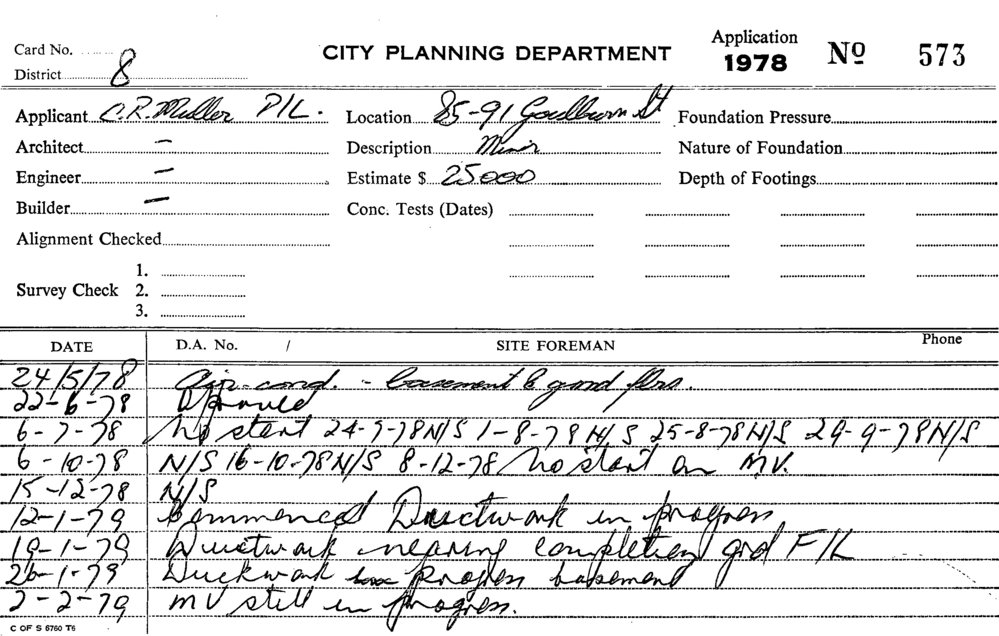 Card No. ........
District 8
CITY PLANNING DEPARTMENT
Application
1978
No 573
Applicant C.R. Muller P/L.
Location 85-91 Goulburn St
Foundation Pressure
Architect –
Description Minor
Nature of Foundation
Engineer –
Estimate $ 25000
Depth of Footings
Builder –
Conc. Tests (Dates)
Alignment Checked
Survey Check
1.
2.
3.
DATE D.A. No. / SITE FOREMAN Phone
24/5/78 Air-cond. - basement & grnd flrs.
22-6-78 Approved
6-7-78 No start 24-7-78 N/S 1-8-78 N/S 25-8-78 N/S 29-9-78 N/S
6-10-78 N/S 16-10-78 N/S 8-12-78 No start on MV.
15-12-78 N/S
12-1-79 Commenced Ductwork in progress
19-1-79 Ductwork nearing completion grd F/L
26-1-79 Duckwork progress basement
2-2-79 MV still in progress.
C OF S 6760 T6